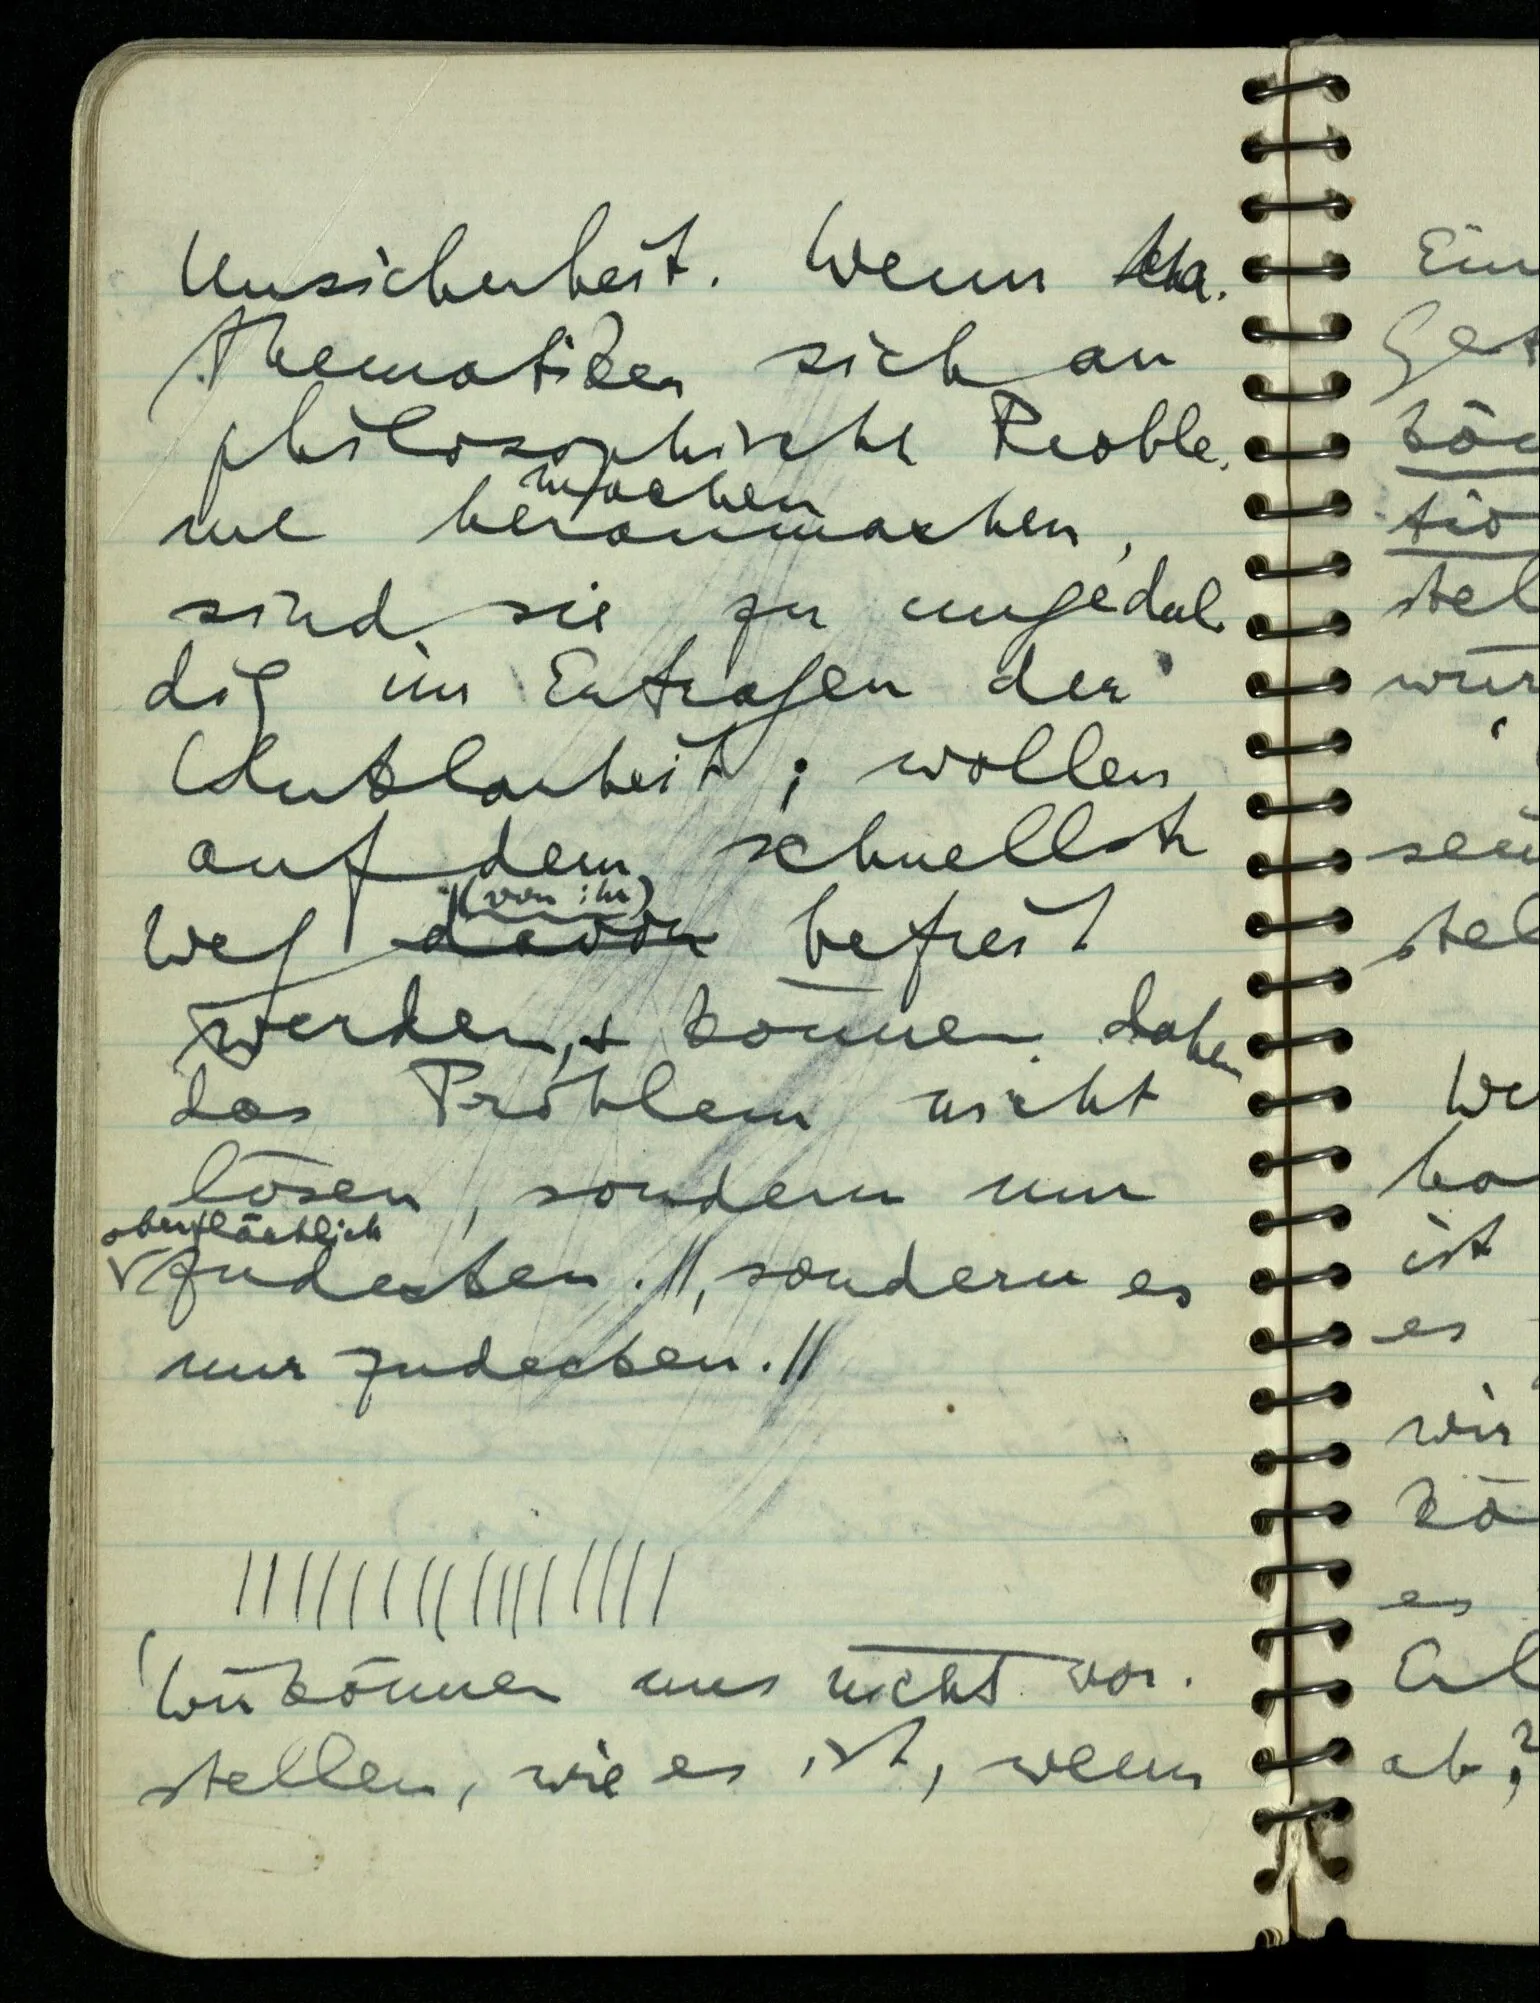 Unsicherheit. Wenn Ma-
thematiker sich an
philosophische Proble-
machen
me heranmachen,
sind sie zu ungedul-
dig im Ertragen der
Unklarheit; wollen
auf dem schnellsten
(von ihr)
Weg davon befreit
werden, + können daher
das Problem nicht
lösen, sondern nur
oberflächlich
zudecken.//, sondern es
nur zudecken.//
Wir können uns nicht vor-
stellen, wie es ist, wenn
Ein
stel
ist
es
wir
es
ab,